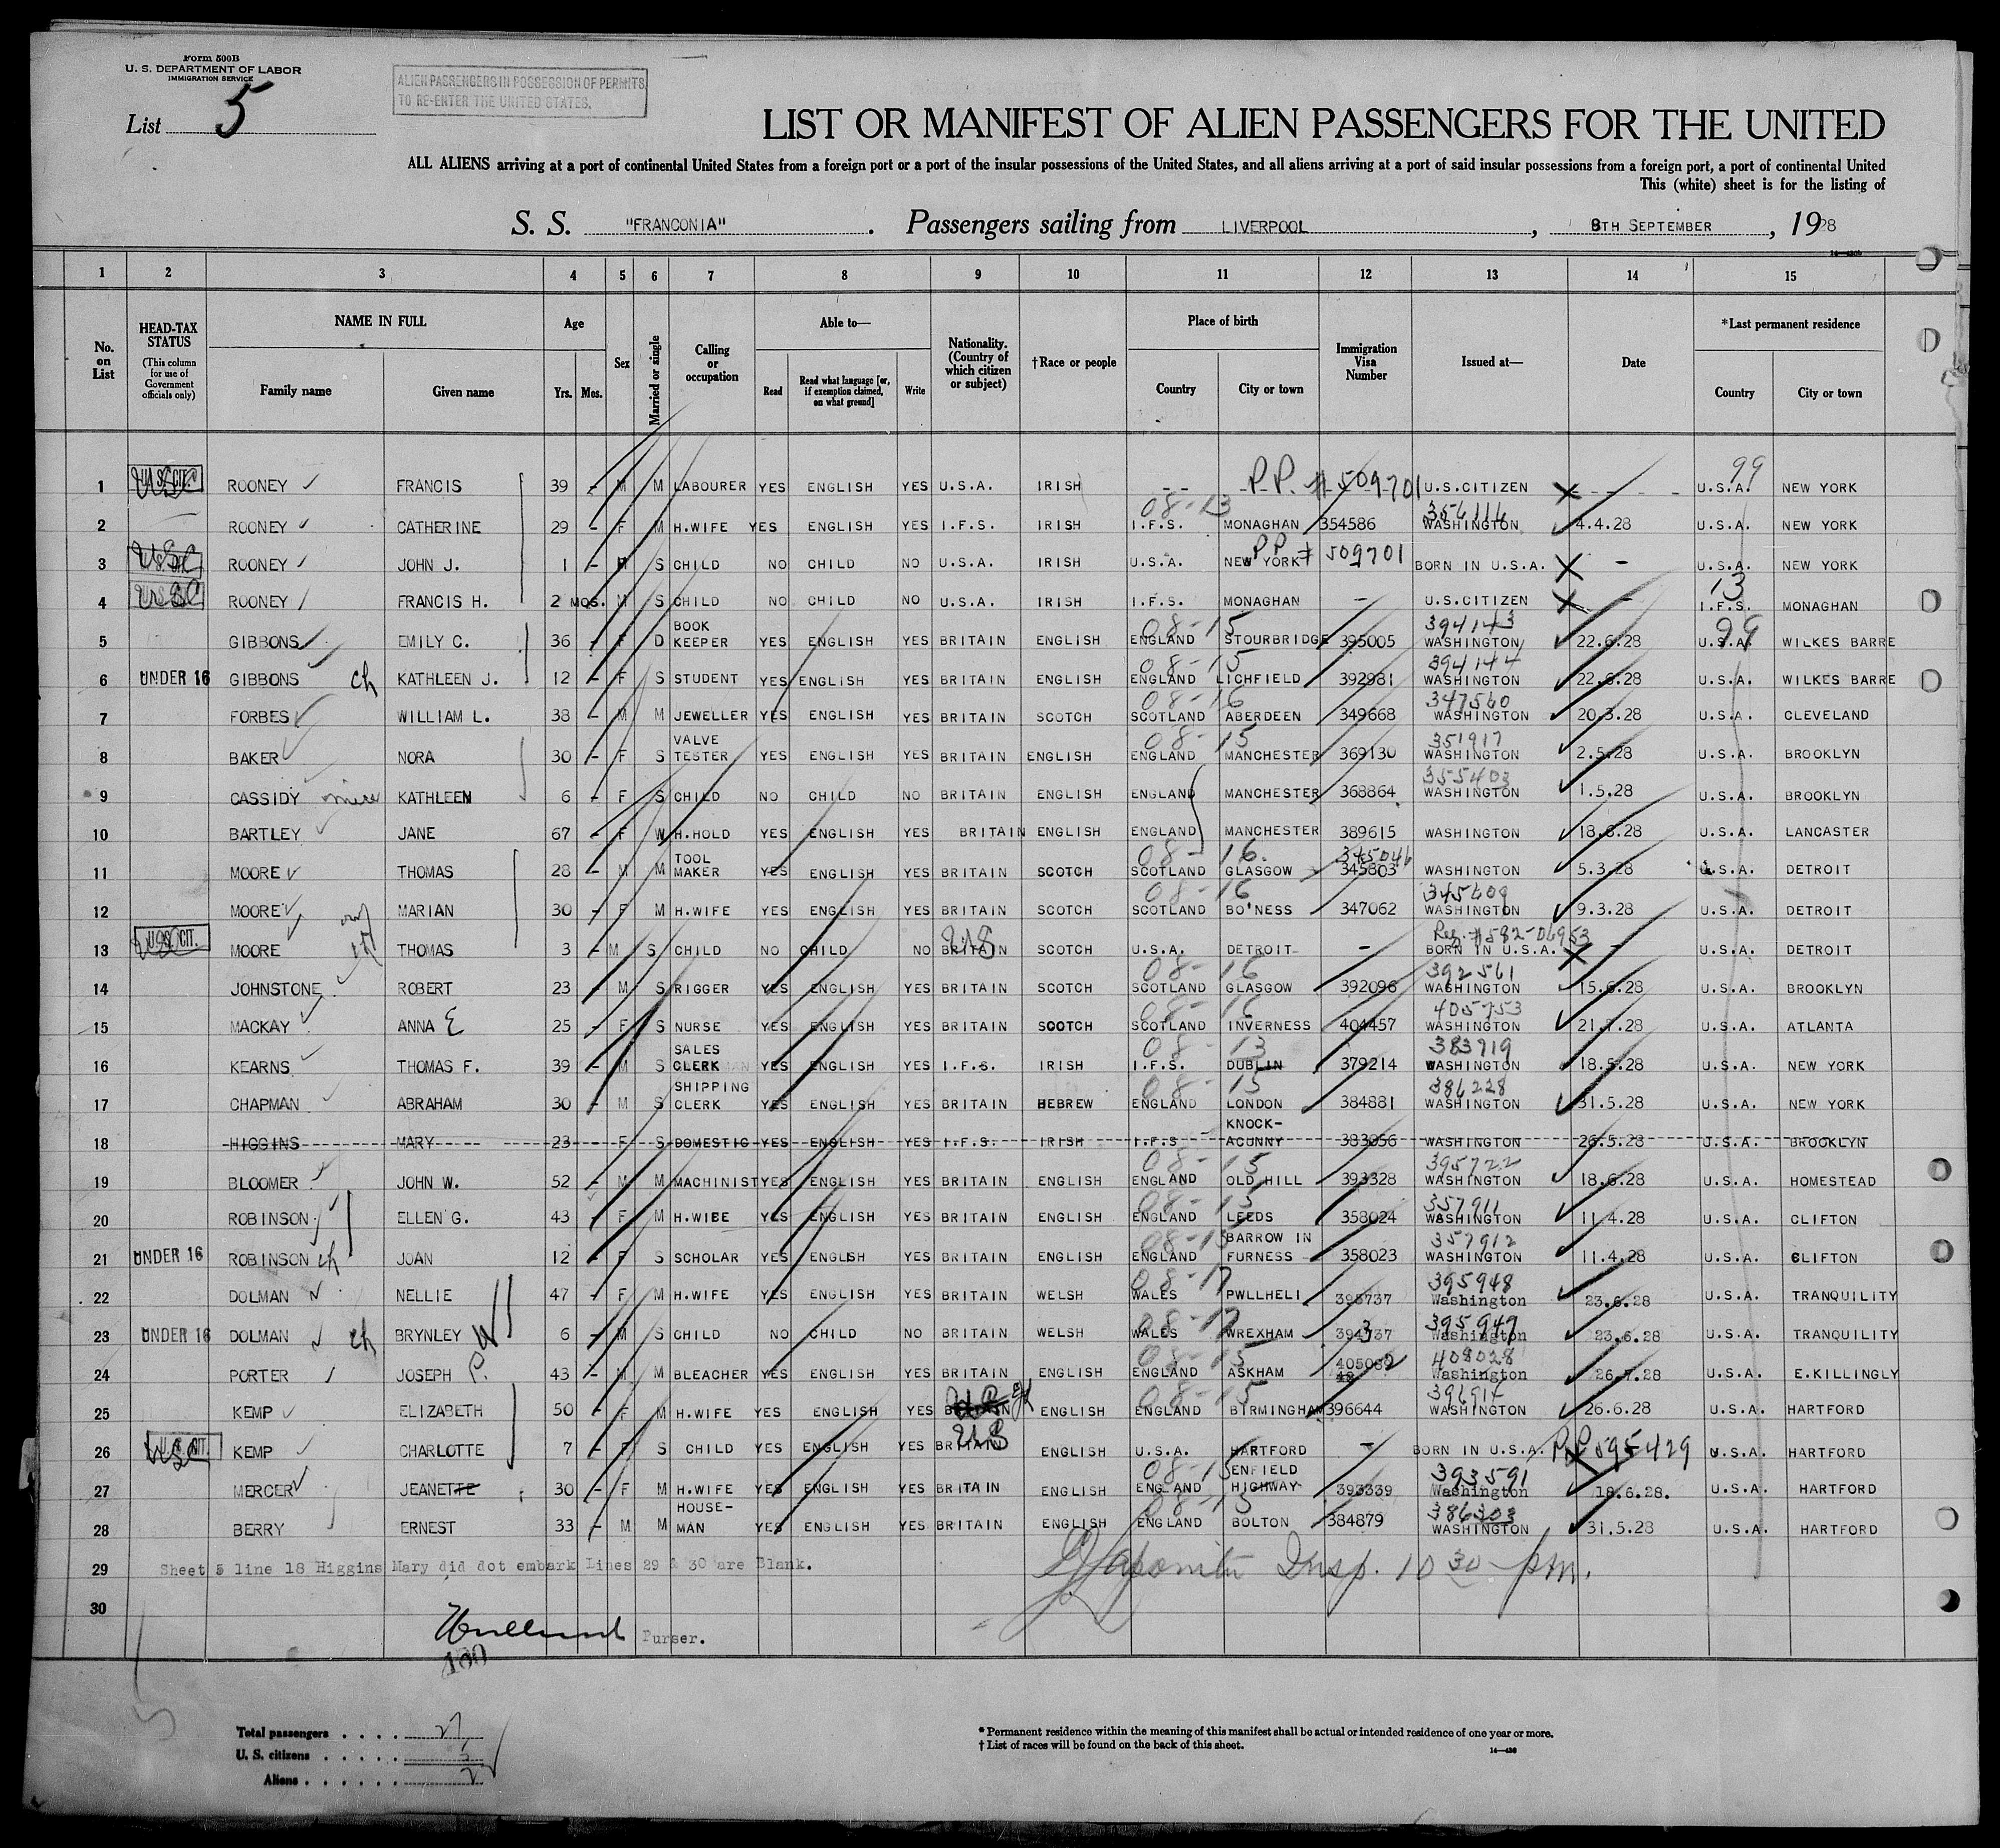 Form 500B
U. S. DEPARTMENT OF LABOR
IMMIGRATION SERVICE
ALIEN PASSENGERS IN POSSESSION OF PERMITS
TO RE-ENTER THE UNITED STATES.
List 5
LIST OR MANIFEST OF ALIEN PASSENGERS FOR THE UNITED
ALL ALIENS arriving at a port of continental United States from a foreign port or a port of the insular possessions of the United States, and all aliens arriving at a port of said insular possessions from a foreign port, a port of continental United
This (white) sheet is for the listing of
S. S. "FRANCONIA" . Passengers sailing from LIVERPOOL , 8TH SEPTEMBER , 1928
1 2 3 4 5 6 7 8 9 10 11 12 13 14 15
No. on List
HEAD-TAX STATUS (This column for use of Government officials only)
NAME IN FULL Family name Given name
Age Yrs. Mos.
Sex
Married or single
Calling or occupation
Able to— Read Read what language [or, if exemption claimed, on what ground] Write
Nationality. (Country of which citizen or subject)
†Race or people
Place of birth Country City or town
Immigration Visa Number
Issued at—
Date
*Last permanent residence Country City or town
99
1 U.S. CIT. USC ROONEY FRANCIS 39 - M M LABOURER YES ENGLISH YES U.S.A. IRISH -- P.P. # 509701 U.S.CITIZEN X U.S.A. NEW YORK
08-13 356116
2 ROONEY CATHERINE 29 - F M H.WIFE YES ENGLISH YES I.F.S. IRISH I.F.S. MONAGHAN 354586 WASHINGTON 4.4.28 U.S.A. NEW YORK
P.P # 509701
3 USC ROONEY JOHN J. 1 - M S CHILD NO CHILD NO U.S.A. IRISH U.S.A. NEW YORK BORN IN U.S.A. X - U.S.A. NEW YORK
13
4 USC ROONEY FRANCIS H. 2 MOS. M S CHILD NO CHILD NO U.S.A. IRISH I.F.S. MONAGHAN - U.S.CITIZEN X - I.F.S. MONAGHAN
BOOK 08-15 394143 99
5 GIBBONS EMILY C. 36 - F D KEEPER YES ENGLISH YES BRITAIN ENGLISH ENGLAND STOURBRIDGE 395005 WASHINGTON 22.6.28 U.S.A. WILKES BARRE
08-15 394144
6 UNDER 16 GIBBONS ch KATHLEEN J. 12 - F S STUDENT YES ENGLISH YES BRITAIN ENGLISH ENGLAND LICHFIELD 392981 WASHINGTON 22.6.28 U.S.A. WILKES BARRE
08-16 347560
7 FORBES WILLIAM L. 38 - M M JEWELLER YES ENGLISH YES BRITAIN SCOTCH SCOTLAND ABERDEEN 349668 WASHINGTON 20.3.28 U.S.A. CLEVELAND
VALVE 08-15 351917
8 BAKER NORA 30 - F S TESTER YES ENGLISH YES BRITAIN ENGLISH ENGLAND MANCHESTER 369130 WASHINGTON 2.5.28 U.S.A. BROOKLYN
355403
9 CASSIDY niece KATHLEEN 6 - F S CHILD NO CHILD NO BRITAIN ENGLISH ENGLAND MANCHESTER 368864 WASHINGTON 1.5.28 U.S.A. BROOKLYN
10 BARTLEY JANE 67 - F W H.HOLD YES ENGLISH YES BRITAIN ENGLISH ENGLAND MANCHESTER 389615 WASHINGTON 18.6.28 U.S.A. LANCASTER
TOOL 08-16. 345046
11 MOORE THOMAS 28 - M M MAKER YES ENGLISH YES BRITAIN SCOTCH SCOTLAND GLASGOW 345803 WASHINGTON 5.3.28 U.S.A. DETROIT
08-16 345609
12 MOORE MARIAN 30 - F M H.WIFE YES ENGLISH YES BRITAIN SCOTCH SCOTLAND BO'NESS 347062 WASHINGTON 9.3.28 U.S.A. DETROIT
US Reg. # 582-06953
13 U.S. CIT. MOORE ch THOMAS 3 - M S CHILD NO CHILD NO BRITAIN SCOTCH U.S.A. DETROIT - BORN IN U.S.A. X - U.S.A. DETROIT
08-16 392561
14 JOHNSTONE ROBERT 23 - M S RIGGER YES ENGLISH YES BRITAIN SCOTCH SCOTLAND GLASGOW 392096 WASHINGTON 15.6.28 U.S.A. BROOKLYN
08-16 405753
15 MACKAY ANNA E 25 - F S NURSE YES ENGLISH YES BRITAIN SCOTCH SCOTLAND INVERNESS 404457 WASHINGTON 21.7.28 U.S.A. ATLANTA
SALES 08-13 383719
16 KEARNS THOMAS F. 39 - M S CLERK YES ENGLISH YES I.F.S. IRISH I.F.S. DUBLIN 379214 WASHINGTON 18.5.28 U.S.A. NEW YORK
SHIPPING 08-15 386228
17 CHAPMAN ABRAHAM 30 - M S CLERK YES ENGLISH YES BRITAIN HEBREW ENGLAND LONDON 384881 WASHINGTON 31.5.28 U.S.A. NEW YORK
KNOCK-
18 HIGGINS MARY 23 F S DOMESTIC YES ENGLISH YES I.F.S. IRISH I.F.S ACUNNY 383056 WASHINGTON 26.5.28 U.S.A. BROOKLYN
08-15 395722
19 BLOOMER JOHN W. 52 - M M MACHINIST YES ENGLISH YES BRITAIN ENGLISH ENGLAND OLD HILL 393328 WASHINGTON 18.6.28 U.S.A. HOMESTEAD
08-15 357911
20 ROBINSON ELLEN G. 43 - F M H.WIFE YES ENGLISH YES BRITAIN ENGLISH ENGLAND LEEDS 358024 WASHINGTON 11.4.28 U.S.A. CLIFTON
08-15 BARROW IN 357912
21 UNDER 16 ROBINSON ch JOAN 12 - F S SCHOLAR YES ENGLISH YES BRITAIN ENGLISH ENGLAND FURNESS 358023 WASHINGTON 11.4.28 U.S.A. CLIFTON
08-17 395948
22 DOLMAN NELLIE 47 - F M H.WIFE YES ENGLISH YES BRITAIN WELSH WALES PWLLHELI 396737 Washington 23.6.28 U.S.A. TRANQUILITY
08-17 395947
23 UNDER 16 DOLMAN ch BRYNLEY W 6 - M S CHILD NO CHILD NO BRITAIN WELSH WALES WREXHAM 394737 Washington 23.6.28 U.S.A. TRANQUILITY
08-15 408028
24 PORTER JOSEPH P. 43 - M M BLEACHER YES ENGLISH YES BRITAIN ENGLISH ENGLAND ASKHAM 405082 Washington 26.7.28 U.S.A. E.KILLINGLY
08-15
25 KEMP ELIZABETH 50 - F M H.WIFE YES ENGLISH YES BRITAIN ENGLISH ENGLAND BIRMINGHAM 396644 WASHINGTON 26.6.28 U.S.A. HARTFORD
US
26 U.S. CIT. USC KEMP CHARLOTTE 7 - F S CHILD YES ENGLISH YES BRITAIN ENGLISH U.S.A. HARTFORD - BORN IN U.S.A. P.P. 595429 U.S.A. HARTFORD
08-15 ENFIELD 393591
27 MERCER JEANETTE 30 - F M H.WIFE YES ENGLISH YES BRITAIN ENGLISH ENGLAND HIGHWAY 393339 Washington 18.6.28. U.S.A. HARTFORD
HOUSE- 08-15 386303
28 BERRY ERNEST 33 - M M MAN YES ENGLISH YES BRITAIN ENGLISH ENGLAND BOLTON 384879 WASHINGTON 31.5.28 U.S.A. HARTFORD
29 Sheet 5 line 18 Higgins Mary did dot embark Lines 29 & 30 are Blank. Insp. 10 30 pm.
30
Purser.
Total passengers . . . . 27
U. S. citizens . . . . . 5
Aliens . . . . . .
* Permanent residence within the meaning of this manifest shall be actual or intended residence of one year or more.
† List of races will be found on the back of this sheet.